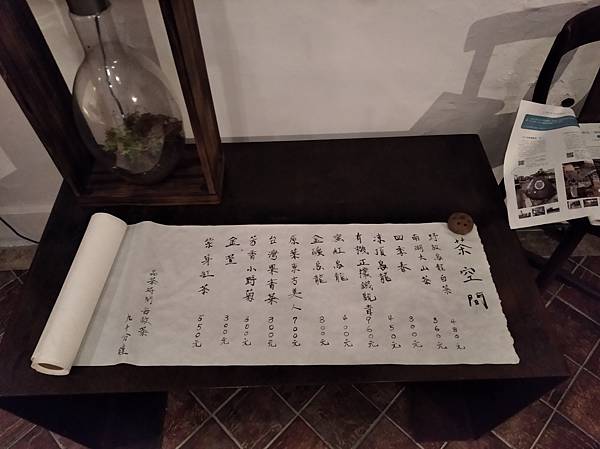 茶空間
野放烏龍白茶 480元
南湖大山茶 360元
四季春 300元
凍頂烏龍 450元
有機正欉鐵觀音 960元
蜜紅烏龍 400元
金湧烏龍 300元
原葉東方美人 700元
台灣果香茶 300元
芳香小野菊 300元
金萱 300元
紫芽紅茶 550元
品茶時間每款茶
九十分鐘